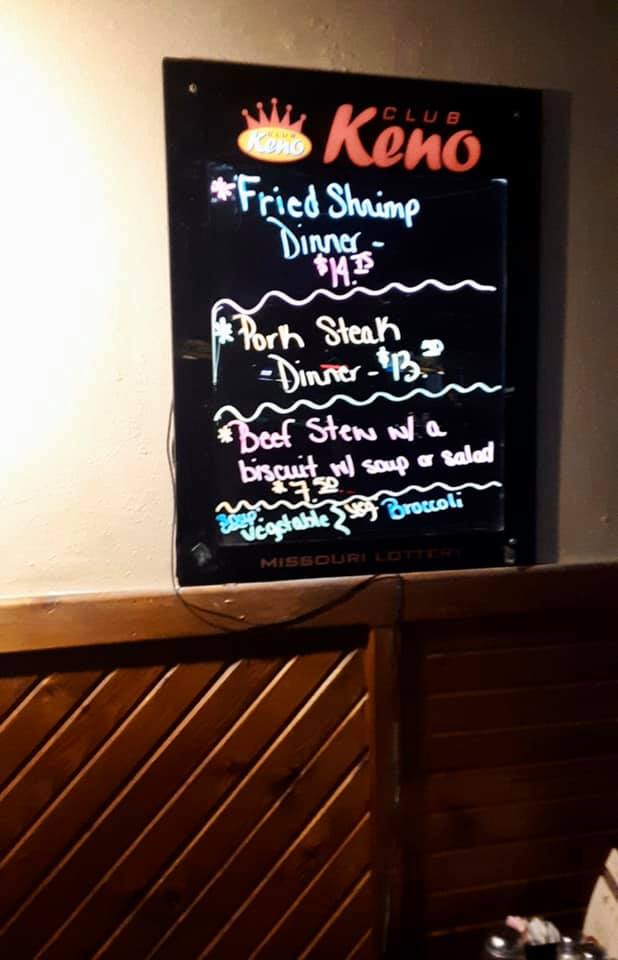 CLUB
Keno
CLUB
Keno
*Fried Shrimp
Dinner -
$14.75
*Pork Steak
Dinner - $13.50
*Beef Stew w/ a
biscuit w/ soup or salad
$7.50
Soup Vegetable } Veg Broccoli
MISSOURI LOTTERY